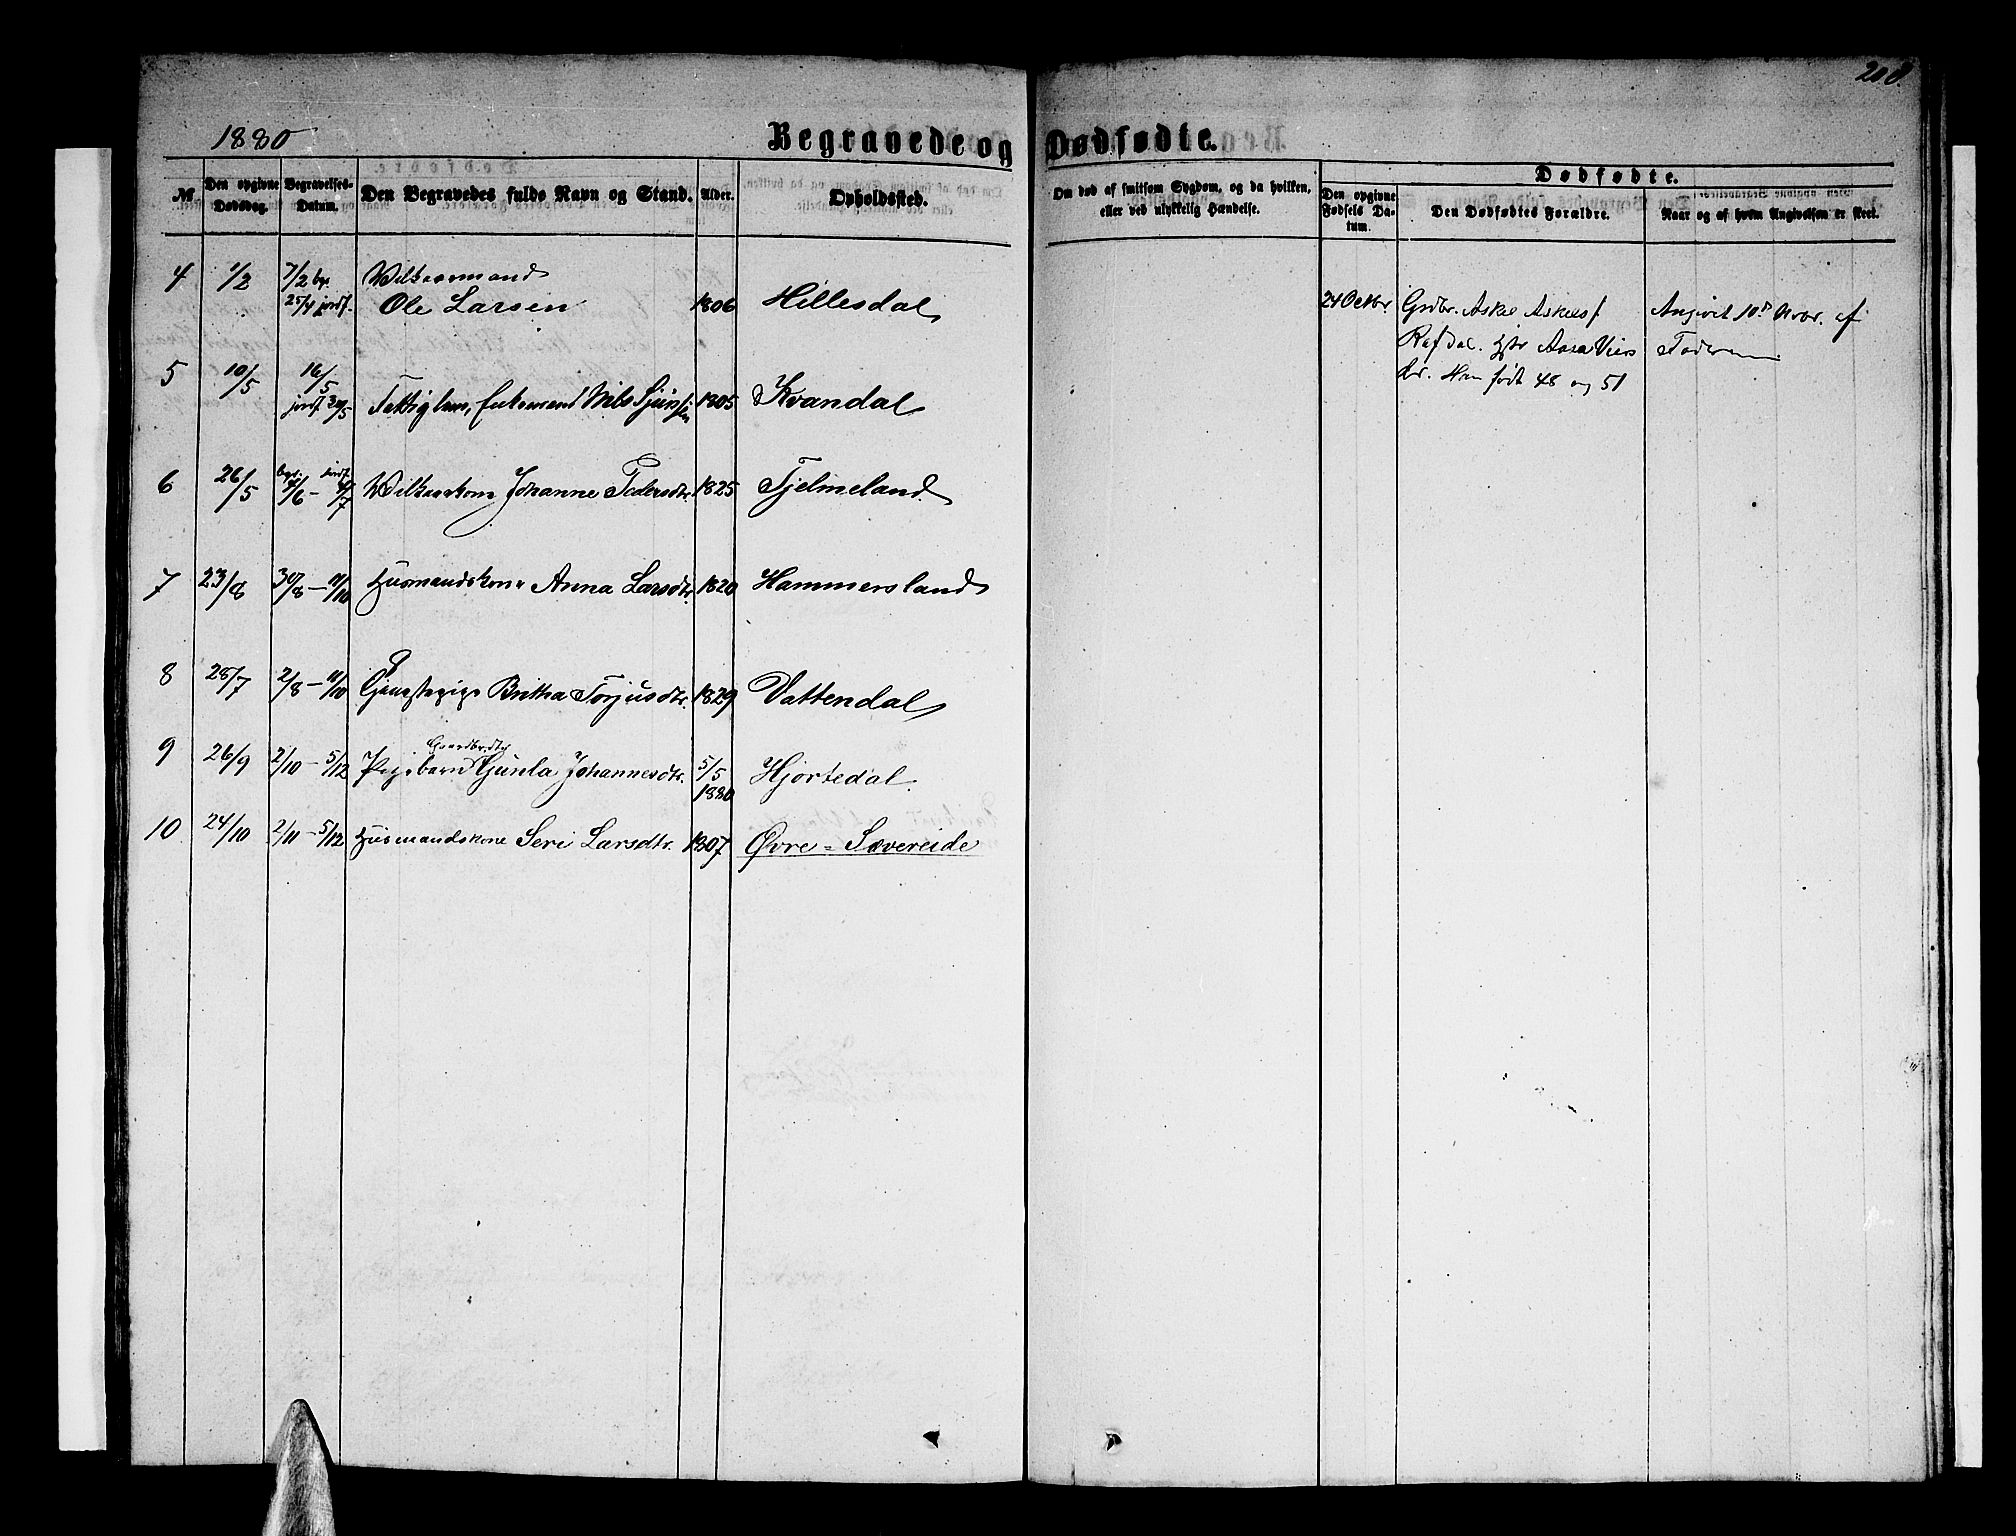 208.
1880
Begravede og Dødfødte.
№
Den opgivne Dødsdag.
Begravelses-Datum.
Den Begravedes fulde Navn og Stand.
Alder.
Opholdssted.
Om død af smitsom Sygdom, og da hvilken, eller ved ulykkelig Hændelse.
Dødfødte.
Den opgivne Fødsels Datum.
Den Dødfødtes Forældre.
Naar og af hvem Angivelsen er skeet.
4 1/2 7/2 begr. Vilkaarmand
25/4 jordf. Ole Larsen 1806 Hillesdal
5 10/5 16/5
jordf 30/5 Fattiglem, Enkemand Nils Sjursen 1805 Kvandal
6 26/5 /6 - 4/7 Vilkaarkone Johanne Pedersdtr. 1825 Tjelmeland
7 23/8 30/8 - /10 Husmandskone Anna Larsdtr. 1820 Hammersland
8 28/7 2/8 - /10 Britha Torjusdtr. 1829 Vattendal
Gaardbr. dtr
9 26/9 2/10 - 5/12 Pigebarn Gunla Johannesdtr. 5/5
1880 Hjortedal.
10 24/10 2/11 - 5/12 Husmandskone Seri Larsdtr. 1807 Øvre - Sævereide
24 Octbr. Grdbr. Askel Askels
Refdal. Hstr Aasa Niels
dr. Han født 48 og 51
Angivet 10de Novbr. af
Faderen